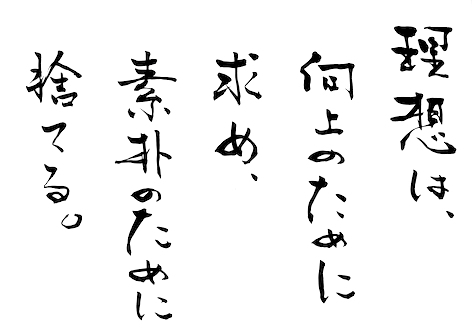 理想は、
向上のために
求め、
素朴のために
捨てる。